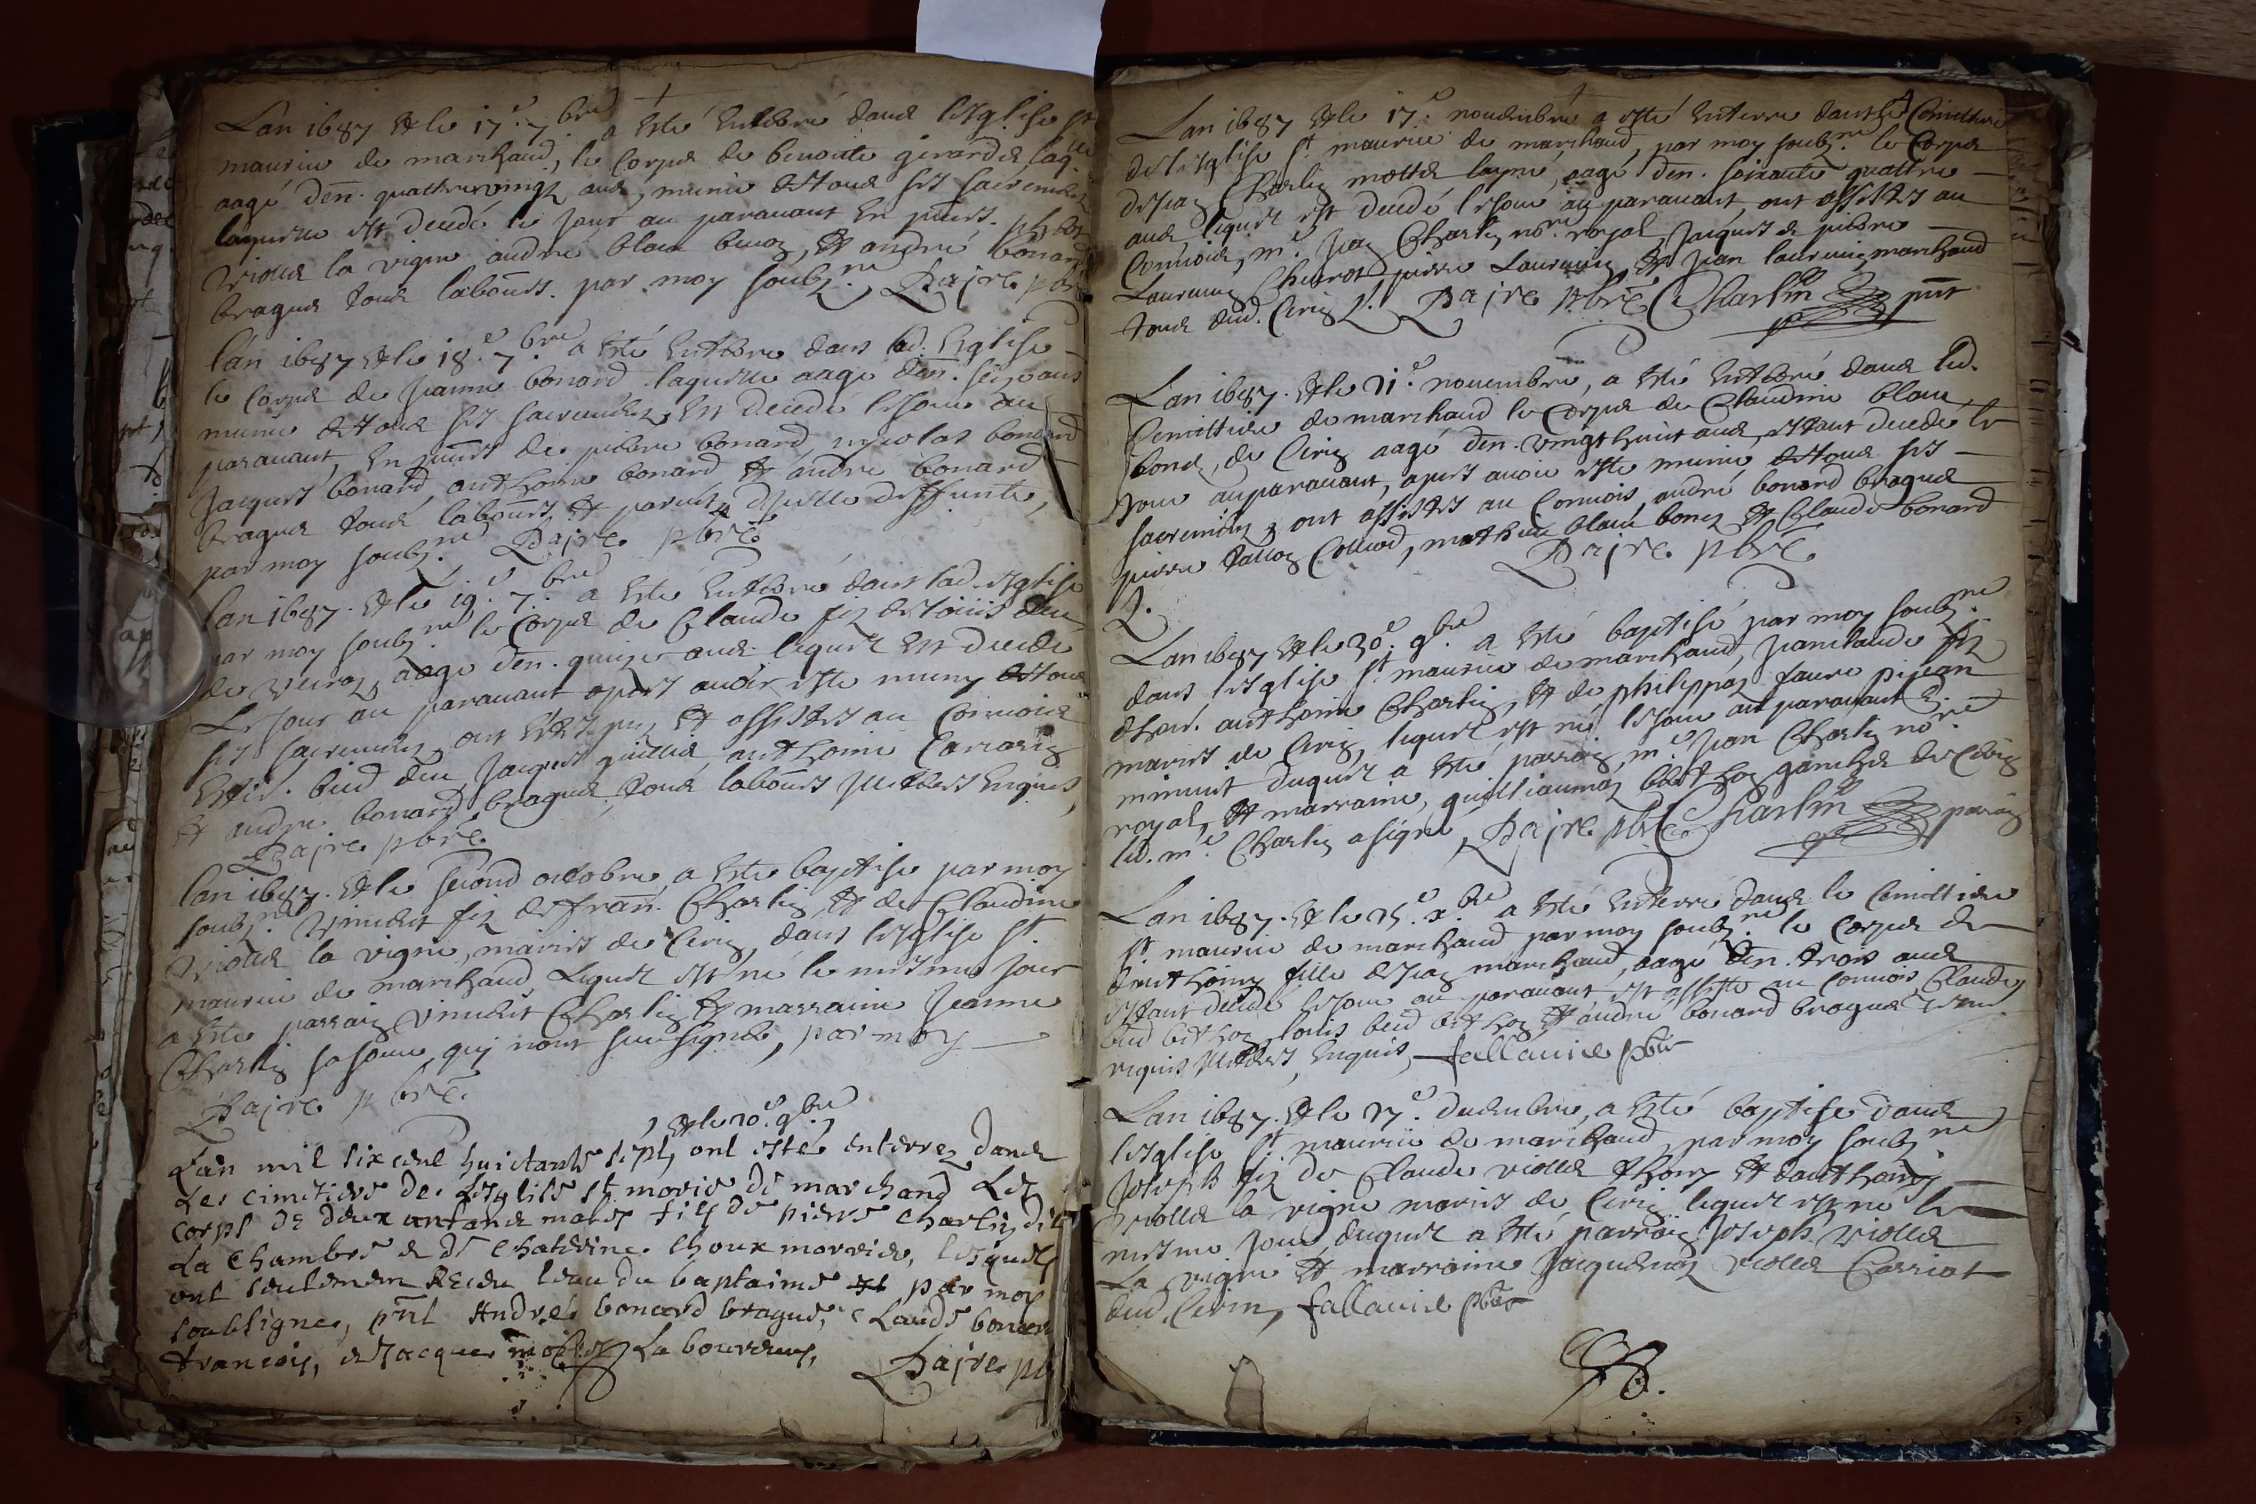 Lan 1687 et le 17e 7bre a esté enterré dans lesglise st
maurice de marchand, le corps de benoite girardet
aagé denn. quattrevingt ans, munie de tous ses sacrements
laquelle est decedé le jour au paravant en pnts.
viollet la vigne andré blanc benoz, et andré bonard
bragues tous labours. par moy soubz.né Dajre pbre
lan 1687 et le 18e 7bre a esté enterré dans lad. Eglise
le corps de jeanne bonard laquelle aage denn. seize ans
munie de tous ses sacrements est decedé le jour au
paravant, en pnts de pierre bonard nycolas bonard
Jacques bonard, anthoine bonard et andre bonard
bragues tous labours et parents dicelle deffunte,
par moy soubz.né Dajre pbre
lan 1687. et le 19e 7bre a esté enterré dans lad. esglise
par moy soubz.né le corps de Claude fiz de
de aage denn. quinze ans lequel est decedé
le jour au paravant apres avoir esté muny de tous
ses sacrements, ont et assistes au convois
bied Jacques anthoine
et andre bonard bragues, tous labours illiteres enquis,
Dajre pbre
lan 1687. et le second octobre, a este baptise par moy
soubz.né Vincent fiz de fran. Charlin et de Claudine
viollet la vigne, mariés de Cerin, dans lesglise st.
maurice de marchand, lequel est né le mesme jour
a este parrain Vincent Charlin et marraine Jeanne
Charlin sa soeur, qui nont sceu signer, par moy
Dajre pbre.
et le 20e 9bre
Lan mil six cent huictante sept, ont esté enterrez dans
Le cimetiere de Lesglise st moris de marchand Les
corps de deux enfans males filz de pierre Charlin dit
La Chambre & de Chaterine Choux mariés, lesquels
ont seulement Receu leau du baptaime par moy
soubsigne, pnt André bonard bragues, Claude bonard
francois, & Jacques Laboureurs,
Dajre pb
Lan 1687 et le 17e novembre a esté enterré dans le Cimettiere
de lesglise st maurice de marchand, par moy soubz.né le Corps
de Jean Charlin mollet layné, aage denn. soixante quattre
ans, lequel est decedé le jour au paravant, ont assistes au
Convois, me Jean Charlin nore royal, Jacques & pierre
Laurencin Chevrot pierre Laurencin, et Jean laurencin marchand
tous dud. Cerin Dajre pbre Charlin pnt
Lan 1687. et le 21e novembre, a esté enterré dans led.
Cimettiere de marchand le Corps de Claudine blanc
bonoz, de Cerin aagé denn. vingt huict ans, estant decedé le
Jour auparavant, apres avoir esté munie de tous ses
sacrements, ont assistes au Convois, andré bonard bragues
pierre Collieod, mathieu blanc bonoz et Claude bonard
Dajre pbre
Lan 1687 et le 30e 9bre a esté baptisé par moy soubz.né
dans lesglise st maurice de marchand, Jean claude fiz
dhon. anthoine Charlin, et de philippaz faure pijean
mariés de Cerin, lequel est né le jour au paravant
minuit duquel a esté parrain, me Jean Charlin nore
royal, et marraine, guilliaumaz berthoz de Cerin
led. me Charlin a signé, Dajre pbre Charlin parrain
Lan 1687. et le 25e xbre a esté enterré dans le Cimettiere
st maurice de marchand par moy soubz.né le corps de
fille de Jean marchand, aage denn. trois ans
estant decedé le jour au paravant et assisté au Convois Claude
bied berthoz, louis bied berthoz et andré bonard bragues
requis illiteres, enquis, fallavier pbre
Lan 1687. et le 27e decembre, a esté baptise dans
lesglise st maurice de marchand par moy soubz.né
Joseph fiz de Claude viollet thony et danthoinaz
viollet la vigne mariés de Cerin lequel est né le
mesme Jour duquel a esté parrain Joseph viollet
La vigne et marraine Jacquemaz viollet Carriot
dud. Cerin, fallavier pbre